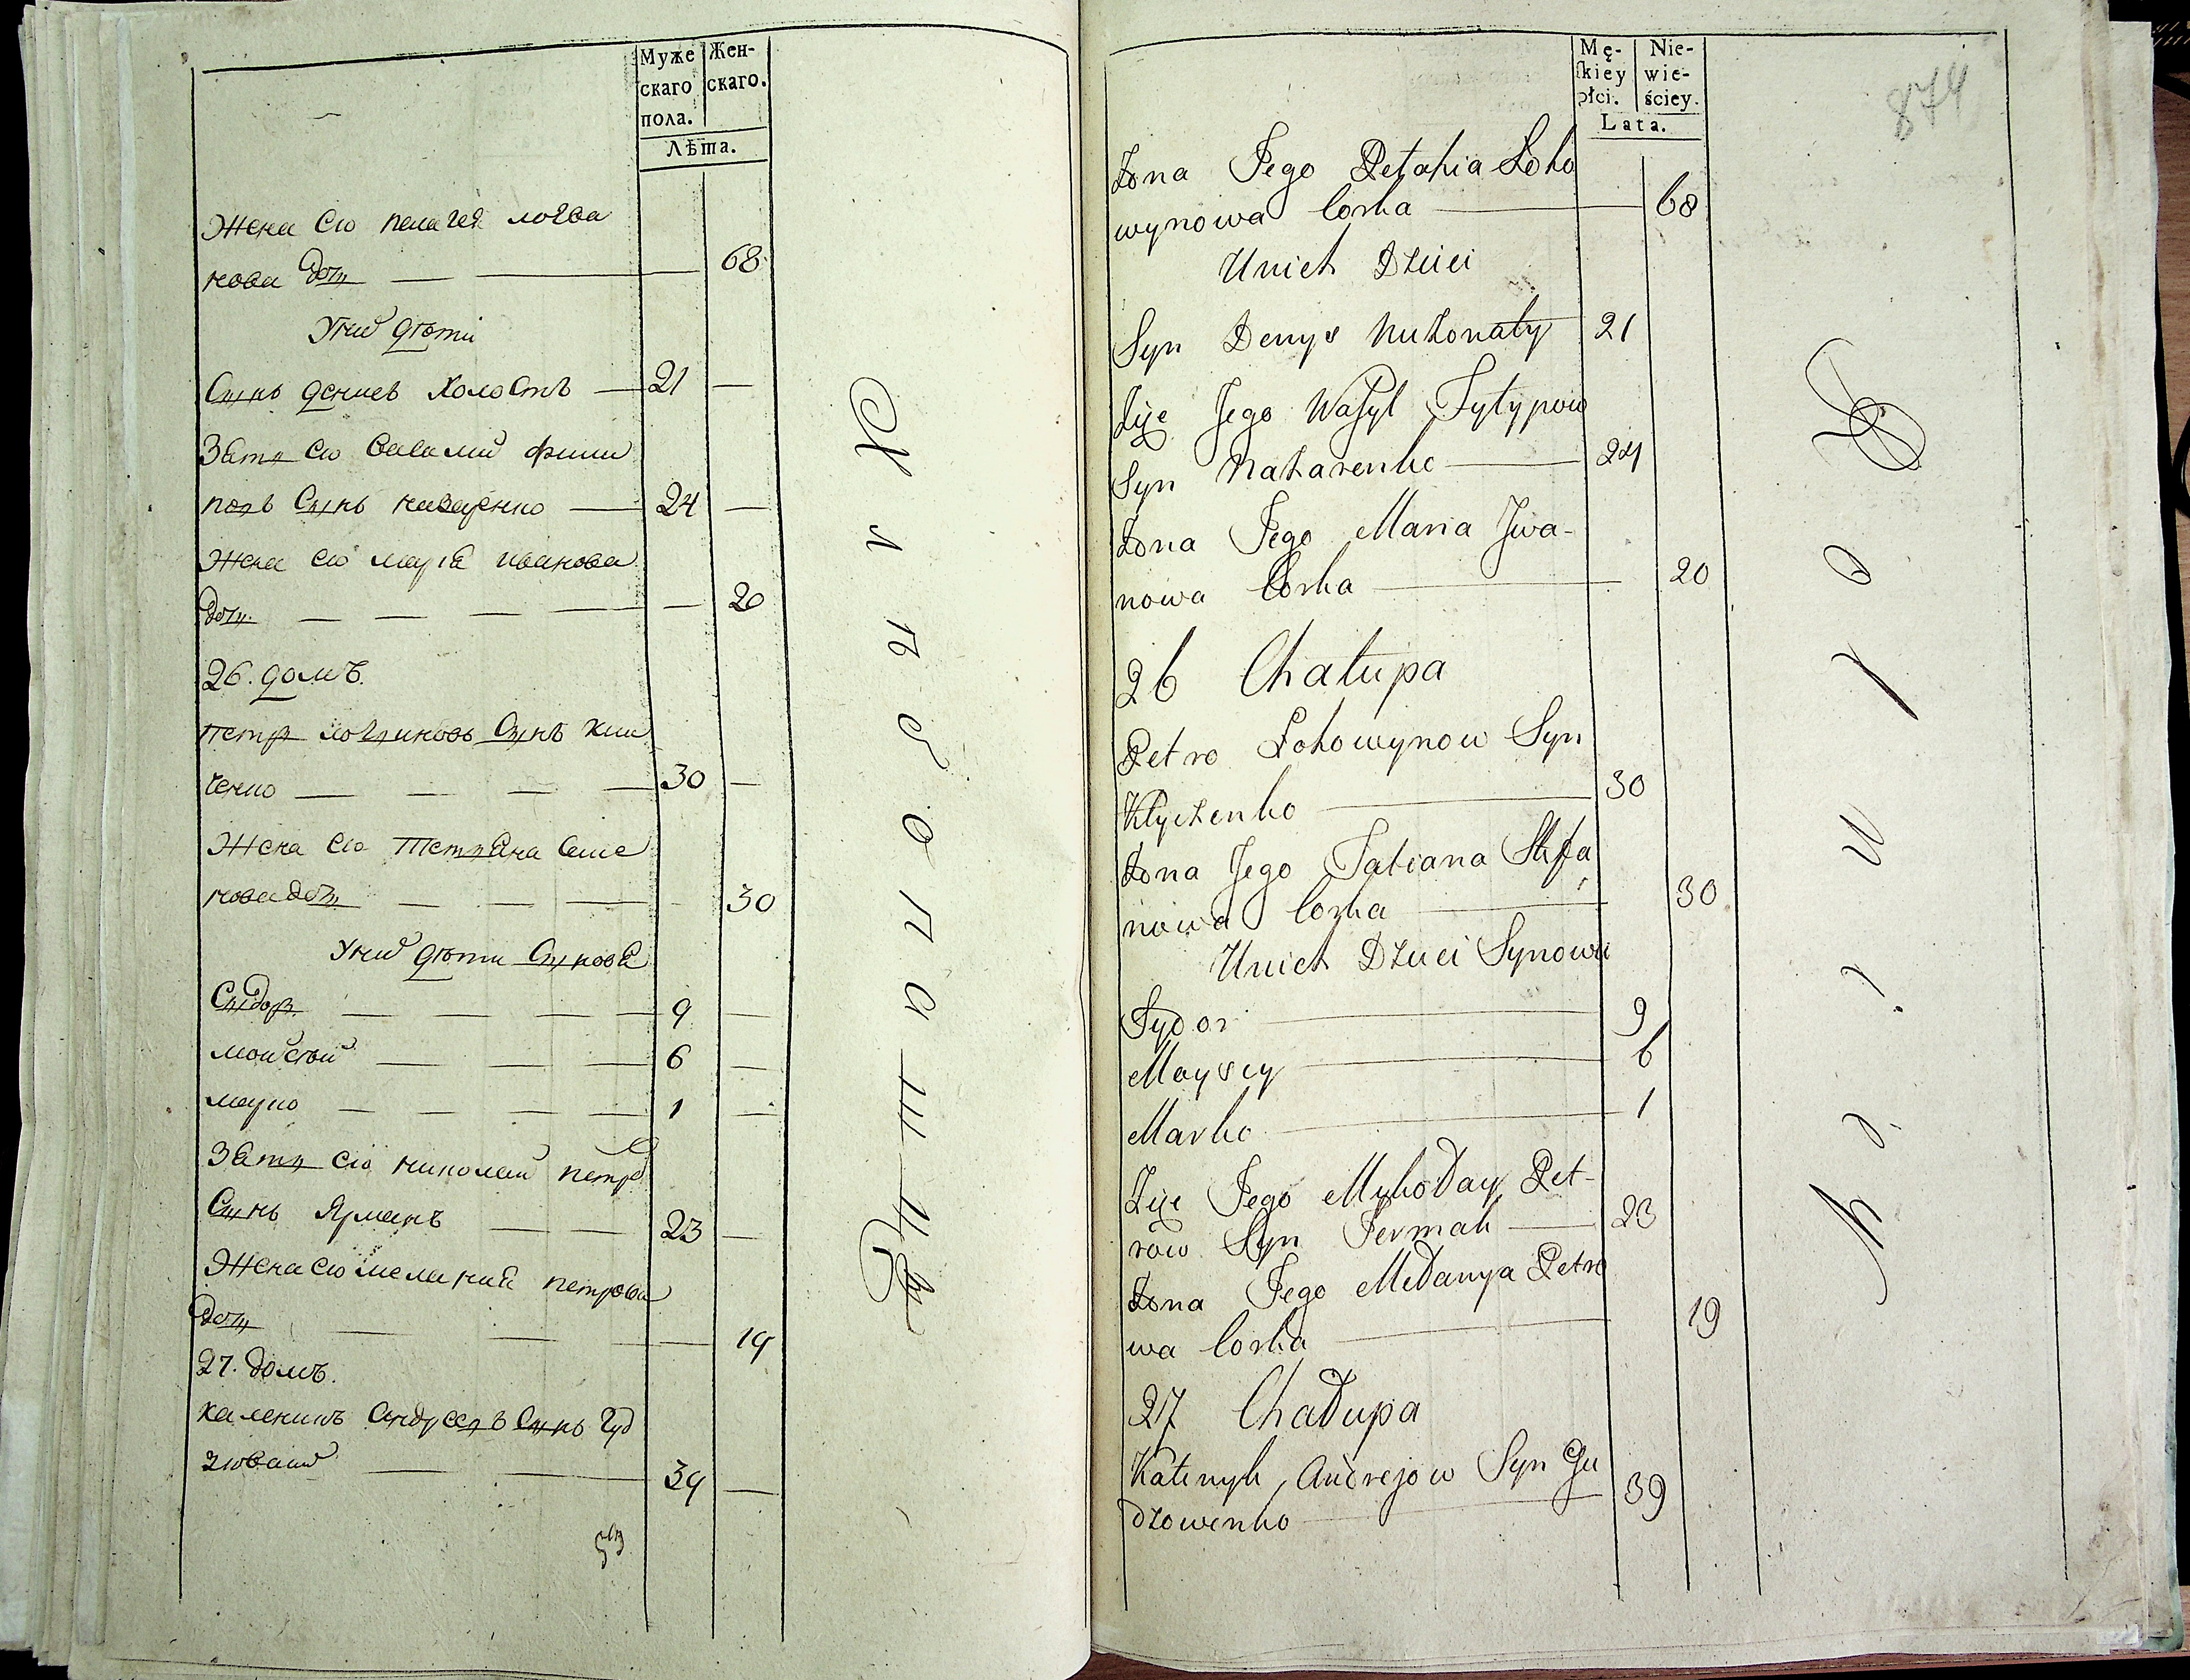 Муже
скаго
пола.
Жен-
скаго.
Лѣта.
Жена Его пелагея логви
нова дочь 68
У них дѣти
Сынъ денисъ холостъ 21
Зять Его Василий фили
повъ Сынъ назаренко 24
Жена Его мария иванова
дочь 20
26. домъ.
петръ логвиновъ Сынъ кли
ченко 30
Жена Его Татияна Сте
нова дочь 30
У них дѣти Сыновя
Сыдоръ 9
мойсей 6
марко 1
Зять Его николай петро
Сынъ Ярмакъ 23
Жена Его мелания петрова
дочь 19
27. домъ.
каленикъ Андреевъ Сынъ Гуд
39
Хлѣбопашцы
Mę-
skiey
płci.
Nie-
wie-
ściey.
Lata.
874
Żona Jego Pełahia Łoho
wynowa Corka 68
Unich Dzieci
Syn Denys Nieżonaty 21
Zięc Jego Wasyl Fyłypow
Syn Nazarenko 24
Żona Jego Maria Jwa-
nowa Corka 20
26 Chałupa
Petro Łohowynow Syn
Kłyczenko 30
Żona Jego Tatiana Stefa
nowa Corka 30
Unich Dzieci Synowie
Sydor 9
Moysey 6
Marko 1
Zięc Jego Mykołay Pet-
row Syn Jermak 23
Żona Jego Mełanya Petro
wa Corka 19
27 Chałupa
Kałenyk Andrejow Syn Gu
dzowenko 39